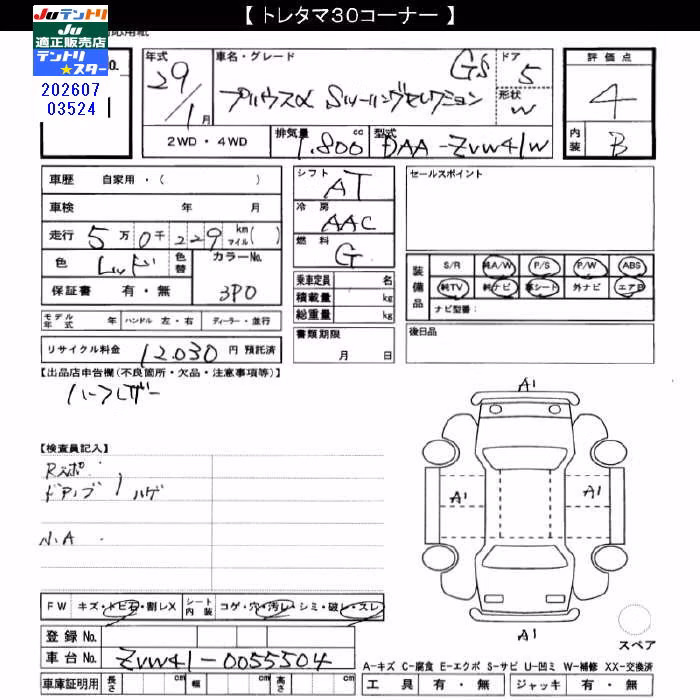 【 トレタマ30コーナー 】
Juテントリ
JU
適正販売店
テントリ
★スター
応用紙
No.
202607
03524
年式
29/1月
車名・グレード
GS
プリウスα Sツーリングセレクション
ドア
5
形状
W
評価点
4
内装
B
2WD・4WD
排気量 1.800 cc
型式 DAA-ZVW41W
車歴 自家用・( )
車検 年 月
走行 5万0千229 km マイル( )
色 レッド 色替 カラーNo.
3P0
保証書 有・無
モデル年式 年 ハンドル 左・右 ディーラー・並行
リサイクル料金 12.030 円 預託済
シフト AT
冷房 AAC
燃料 G
乗車定員 名
積載量 kg
総重量 kg
書類期限
月 日
セールスポイント
装備品
S/R 純A/W P/S P/W ABS
純TV 純ナビ 革シート 外ナビ エアB
ナビ型番:
後日品
【出品店申告欄(不良箇所・欠品・注意事項等)】
ハーフレザー
【検査員記入】
Rスポ
ドアノブ ハゲ
小A
A1
A1 A1
A1
スペア
FW キズ・トビ石・割レX シート内装 コゲ・穴・汚レ・シミ・破レ・スレ
登録No.
車台No. ZVW41-0055504
車庫証明用 長さ cm 幅 cm 高さ cm
A-キズ C-腐食 E-エクボ S-サビ U-凹ミ W-補修 XX-交換済
工具 有・無 ジャッキ 有・無